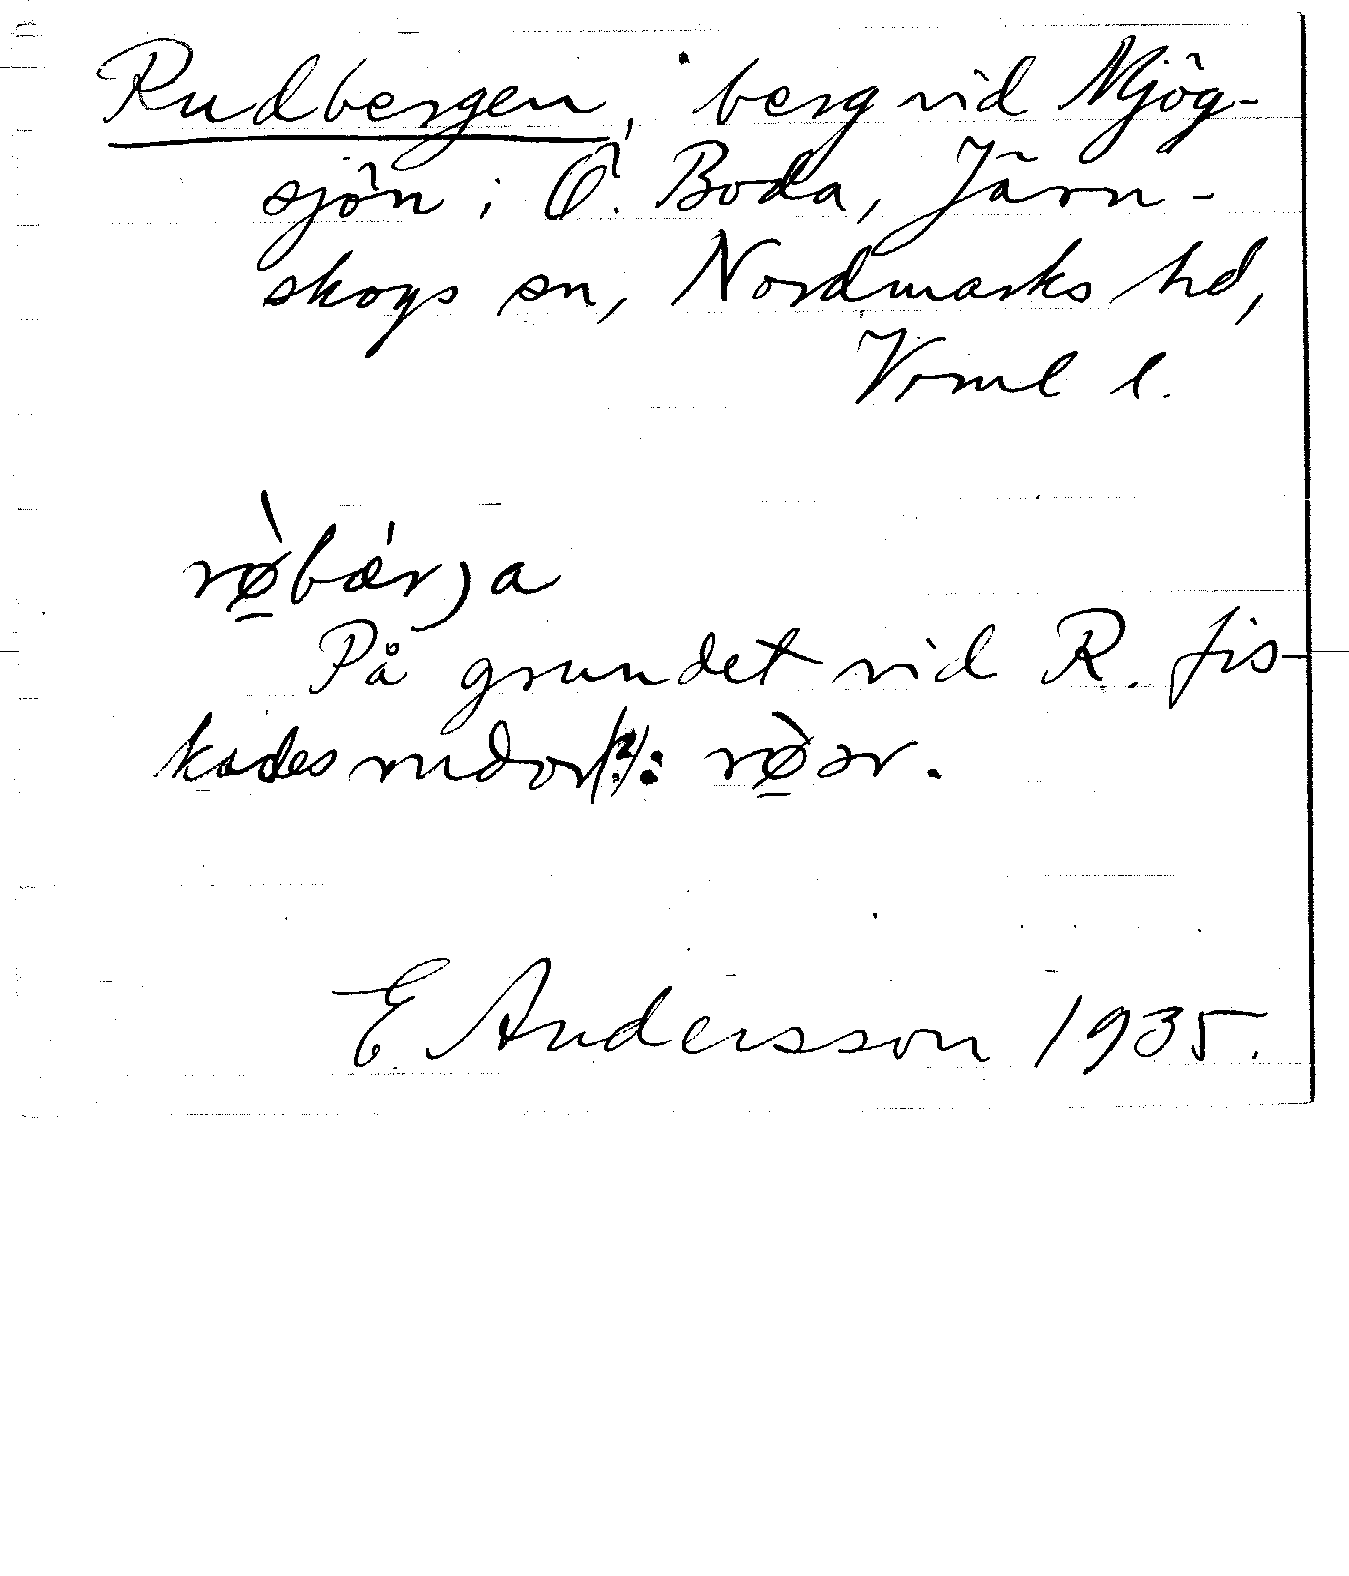 Rudbergen, berg vid Mjög-
sjön i Ö. Boda, Järn-
skogs sn, Nordmarks hd,
Vrml l.
rø̠̀bǽrja
På grundet vid R. fis-
kades rudor(?): rø̠̀ər.
E Andersson 1935.